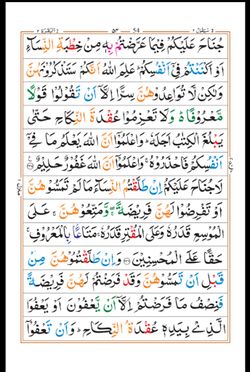 جُنَاحَ عَلَيْكُمْ فِيْمَا عَرَّضْتُمْ بِهٖ مِنْ خِطْبَةِ النِّسَآءِ
اَوْ اَكْنَنْتُمْ فِيْٓ اَنْفُسِكُمْ ؕ عَلِمَ اللّٰهُ اَنَّكُمْ سَتَذْكُرُوْنَهُنَّ
وَلٰكِنْ لَّا تُوَاعِدُوْهُنَّ سِرًّا اِلَّآ اَنْ تَقُوْلُوْا قَوْلًا
مَّعْرُوْفًا ؕ۬ وَلَا تَعْزِمُوْا عُقْدَةَ النِّكَاحِ حَتّٰى
يَبْلُغَ الْكِتٰبُ اَجَلَهٗ ؕ وَاعْلَمُوْٓا اَنَّ اللّٰهَ يَعْلَمُ مَا فِيْٓ
اَنْفُسِكُمْ فَاحْذَرُوْهُ ۚ وَاعْلَمُوْٓا اَنَّ اللّٰهَ غَفُوْرٌ حَلِيْمٌ
لَا جُنَاحَ عَلَيْكُمْ اِنْ طَلَّقْتُمُ النِّسَآءَ مَا لَمْ تَمَسُّوْهُنَّ
اَوْ تَفْرِضُوْا لَهُنَّ فَرِيْضَةً ۖۚ وَّمَتِّعُوْهُنَّ ۚ عَلَى
الْمُوْسِعِ قَدَرُهٗ وَعَلَى الْمُقْتِرِ قَدَرُهٗ ۚ مَتَاعًۢا بِالْمَعْرُوْفِ ۚ
حَقًّا عَلَى الْمُحْسِنِيْنَ وَاِنْ طَلَّقْتُمُوْهُنَّ مِنْ
قَبْلِ اَنْ تَمَسُّوْهُنَّ وَقَدْ فَرَضْتُمْ لَهُنَّ فَرِيْضَةً
فَنِصْفُ مَا فَرَضْتُمْ اِلَّآ اَنْ يَّعْفُوْنَ اَوْ يَعْفُوَا
الَّذِيْ بِيَدِهٖ عُقْدَةُ النِّكَاحِ ؕ وَاَنْ تَعْفُوْٓا